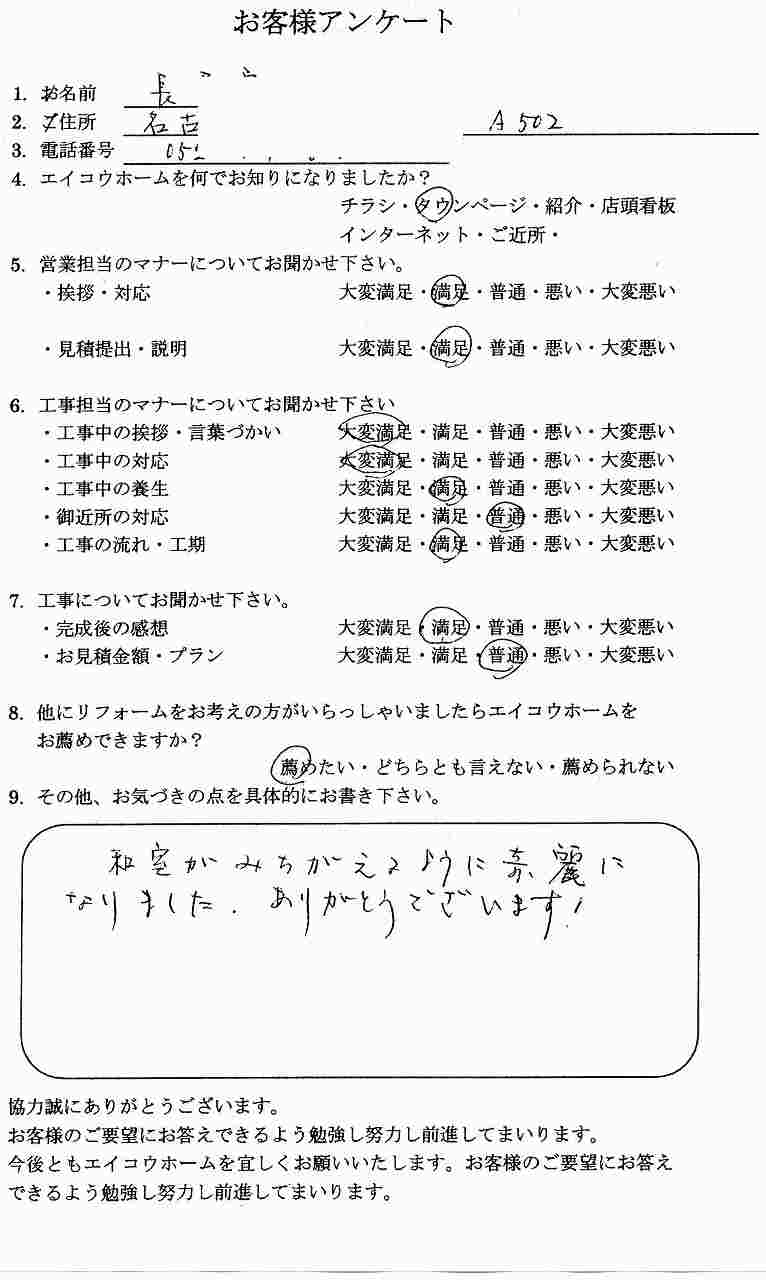 お客様アンケート
1. お名前 長
2. ご住所 名古 A 502
3. 電話番号 052
4. エイコウホームを何でお知りになりましたか？
チラシ・タウンページ・紹介・店頭看板
インターネット・ご近所・
5. 営業担当のマナーについてお聞かせ下さい。
・挨拶・対応 大変満足・満足・普通・悪い・大変悪い
・見積提出・説明 大変満足・満足・普通・悪い・大変悪い
6. 工事担当のマナーについてお聞かせ下さい
・工事中の挨拶・言葉づかい 大変満足・満足・普通・悪い・大変悪い
・工事中の対応 大変満足・満足・普通・悪い・大変悪い
・工事中の養生 大変満足・満足・普通・悪い・大変悪い
・御近所の対応 大変満足・満足・普通・悪い・大変悪い
・工事の流れ・工期 大変満足・満足・普通・悪い・大変悪い
7. 工事についてお聞かせ下さい。
・完成後の感想 大変満足・満足・普通・悪い・大変悪い
・お見積金額・プラン 大変満足・満足・普通・悪い・大変悪い
8. 他にリフォームをお考えの方がいらっしゃいましたらエイコウホームを
お薦めできますか？
薦めたい・どちらとも言えない・薦められない
9. その他、お気づきの点を具体的にお書き下さい。
和室がみちがえるように奇麗に
なりました。ありがとうございます！
協力誠にありがとうございます。
お客様のご要望にお答えできるよう勉強し努力し前進してまいります。
今後ともエイコウホームを宜しくお願いいたします。お客様のご要望にお答え
できるよう勉強し努力し前進してまいります。